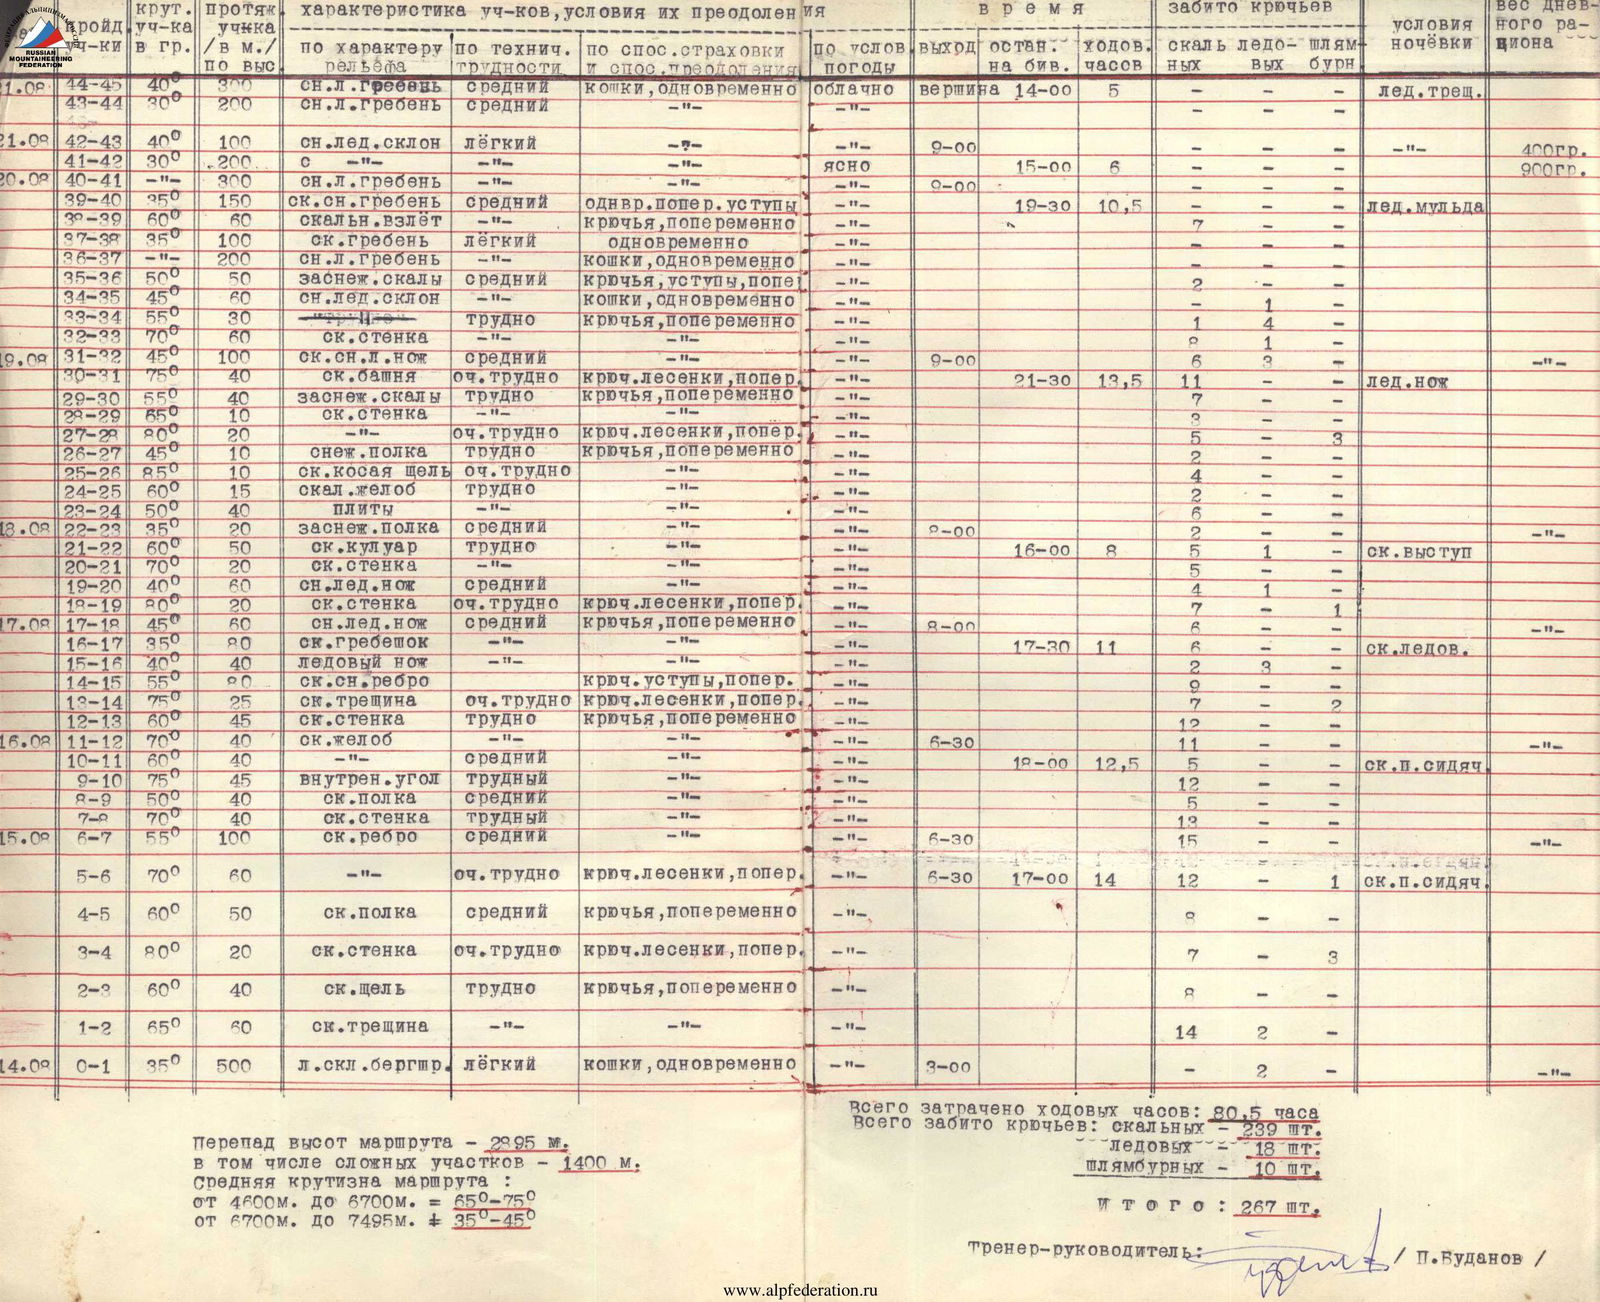 ФЕДЕРАЦИЯ АЛЬПИНИЗМА РОССИИ
RUSSIAN
MOUNTAINEERING
FEDERATION
пройд. уч-ки | крут. уч-ка в гр. | протяж. уч-ка /в м./ по выс. | характеристика уч-ков, условия их преодоления | время | забито крючьев | условия ночёвки | вес днев-ного ра-циона
по характеру рельефа | по технич. трудности | по спос.страховки и спос.преодоления | по услов. погоды | выход | остан. на бив. | ходов. часов | скаль ных | ледо- вых | шлям- бурн
21.08 44-45 40° 300 сн.л.гребень средний кошки,одновременно облачно вершина 14-00 5 – – – лед.трещ.
43-44 30° 200 сн.л.гребень средний –"– –"– – – –
21.08 42-43 40° 100 сн.лед.склон лёгкий –"– –"– 9-00 – – – –"– 400гр.
41-42 30° 200 с –"– –"– –"– ясно 15-00 6 – – – 900гр.
20.08 40-41 –"– 300 сн.л.гребень –"– –"– –"– 9-00 – – –
39-40 35° 150 ск.сн.гребень средний однвр.попер.уступы –"– 19-30 10,5 – – – лед.мульда
38-39 60° 60 скальн.взлёт –"– крючья,попеременно –"– 7 – –
37-38 35° 100 ск.гребень лёгкий одновременно –"– – – –
36-37 –"– 200 сн.л.гребень –"– кошки,одновременно –"– – – –
35-36 50° 50 заснеж.скалы средний крючья,уступы,попе –"– 2 – –
34-35 45° 60 сн.лед.склон –"– кошки,одновременно –"– – 1 –
33-34 55° 30 трудно крючья,попеременно –"– 1 4 –
32-33 70° 60 ск.стенка –"– –"– –"– 8 1 –
19.08 31-32 45° 100 ск.сн.л.нож средний –"– –"– 9-00 6 3 – –"–
30-31 75° 40 ск.башня оч.трудно крюч.лесенки,попер. –"– 21-30 13,5 11 – – лед.нож
29-30 55° 40 заснеж.скалы трудно крючья,попеременно –"– 7 – –
28-29 65° 10 ск.стенка –"– –"– –"– 3 – –
27-28 80° 20 –"– оч.трудно крюч.лесенки,попер. –"– 5 – 3
26-27 45° 10 снеж.полка трудно крючья,попеременно –"– 2 – –
25-26 85° 10 ск.косая щель оч.трудно –"– –"– 4 – –
24-25 60° 15 скал.желоб трудно –"– –"– 2 – –
23-24 50° 40 плиты –"– –"– –"– 6 – –
18.08 22-23 35° 20 заснеж.полка средний –"– –"– 8-00 2 – – –"–
21-22 60° 50 ск.кулуар трудно –"– –"– 16-00 8 5 1 – ск.выступ
20-21 70° 20 ск.стенка –"– –"– –"– 5 – –
19-20 40° 60 сн.лед.нож средний –"– –"– 4 1 –
18-19 80° 20 ск.стенка оч.трудно крюч.лесенки,попер. –"– 7 – 1
17.08 17-18 45° 60 сн.лед.нож средний крючья,попеременно –"– 8-00 6 – – –"–
16-17 35° 80 ск.гребешок –"– –"– –"– 17-30 11 6 – – ск.ледов.
15-16 40° 40 ледовый нож –"– –"– –"– 2 3 –
14-15 55° 80 ск.сн.ребро крюч.уступы,попер. –"– 9 – –
13-14 75° 25 ск.трещина оч.трудно крюч.лесенки,попер. –"– 7 – 2
12-13 60° 45 ск.стенка трудно крючья,попеременно –"– 12 – –
16.08 11-12 70° 40 ск.желоб –"– –"– –"– 6-30 11 – – –"–
10-11 60° 40 –"– средний –"– –"– 18-00 12,5 5 – – ск.п.сидяч.
9-10 75° 45 внутрен.угол трудный –"– –"– 12 – –
8-9 50° 40 ск.полка средний –"– –"– 5 – –
7-8 70° 40 ск.стенка трудный –"– –"– 13 – –
15.08 6-7 55° 100 ск.ребро средний –"– –"– 6-30 15 – – –"–
5-6 70° 60 –"– оч.трудно крюч.лесенки,попер. –"– 6-30 17-00 14 12 – 1 ск.п.сидяч.
4-5 60° 50 ск.полка средний крючья,попеременно –"– 8 – –
3-4 80° 20 ск.стенка оч.трудно крюч.лесенки,попер. –"– 7 – 3
2-3 60° 40 ск.щель трудно крючья,попеременно –"– 8 – –
1-2 65° 60 ск.трещина –"– –"– –"– 14 2 –
14.08 0-1 35° 500 л.скл.бергшр. лёгкий кошки,одновременно –"– 3-00 – 2 – –"–
Всего затрачено ходовых часов: 80,5 часа
Всего забито крючьев: скальных – 239 шт.
ледовых – 18 шт.
шлямбурных – 10 шт.
Итого: 267 шт.
Перепад высот маршрута – 2895 м.
в том числе сложных участков – 1400 м.
Средняя крутизна маршрута :
от 4600м. до 6700м. = 65°-75°
от 6700м. до 7495м. = 35°-45°
Тренер-руководитель: / П.Буданов /
www.alpfederation.ru